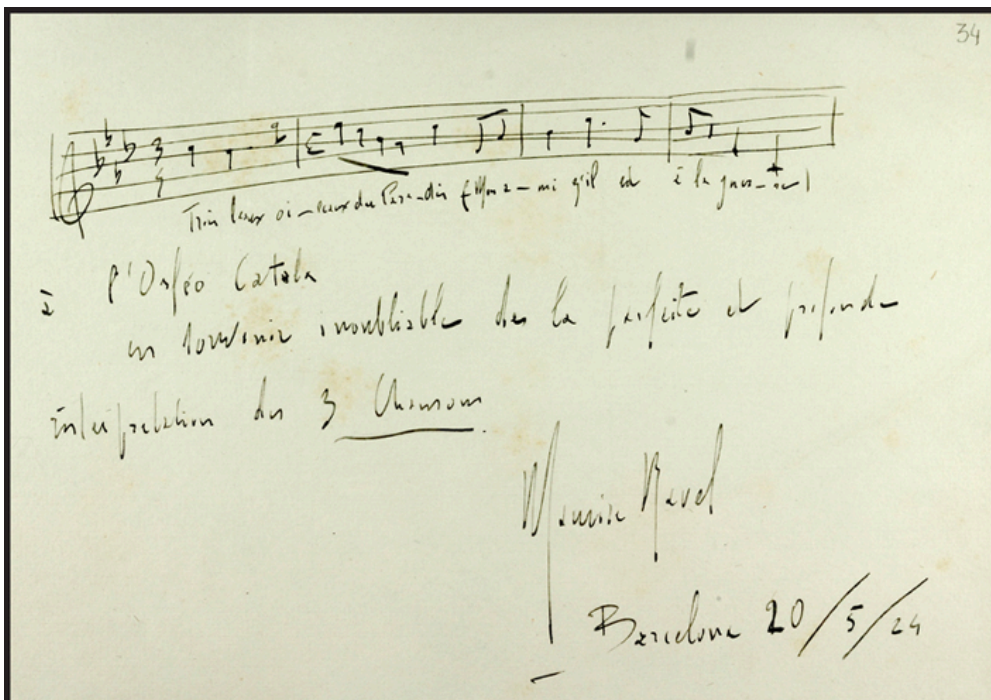 34
3
4
C
Trois beaux oi-seaux du Para-dis (Mon a-mi z'il est à la guer-re)
à l'Orféo Català
un souvenir inoubliable de la parfaite et profonde
interprétation des 3 Chansons
Maurice Ravel
Barcelona 20/5/24